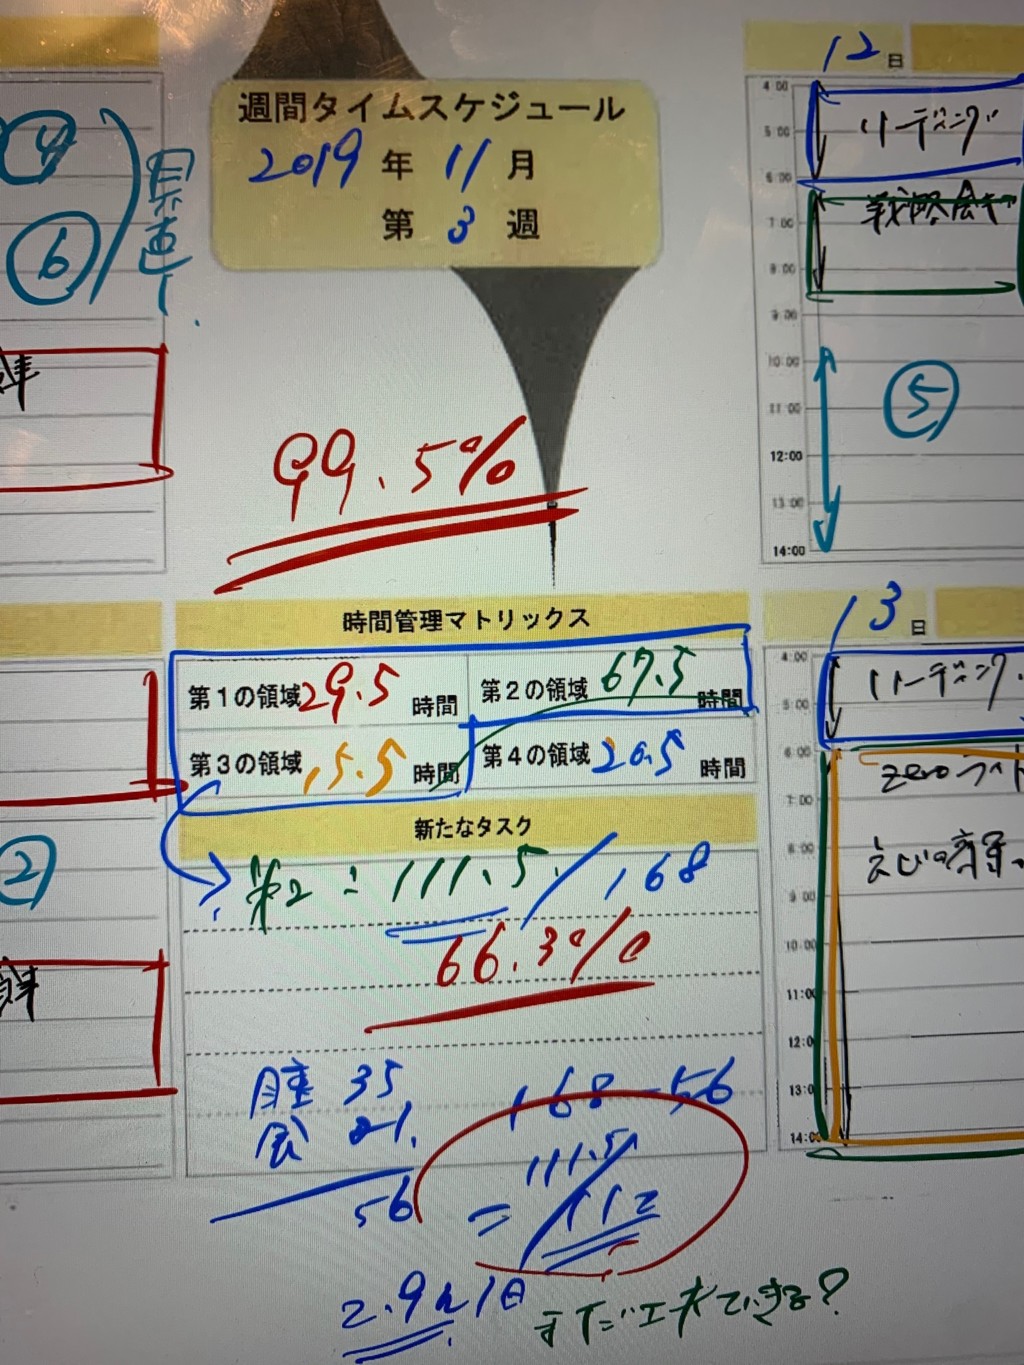 週間タイムスケジュール
2019年 11月
第 3 週
④
⑥
県連
準
99.5%
時間管理マトリックス
第1の領域 29.5 時間
第2の領域 67.5 時間
第3の領域 15.5 時間
第4の領域 20.5 時間
新たなタスク
第2: 111.5/168
66.3%
睡 35
食 21.
56
168-56
= 111.5/112
2.9h/日
まだ工夫できる?
②
12日
4:00
リーディング
5:00
6:00
戦略会
7:00
8:00
9:00
10:00
⑤
11:00
12:00
13:00
14:00
13日
4:00
リーディング
5:00
6:00
zero
7:00
8:00
9:00
10:00
11:00
12:0
13:0
14:0